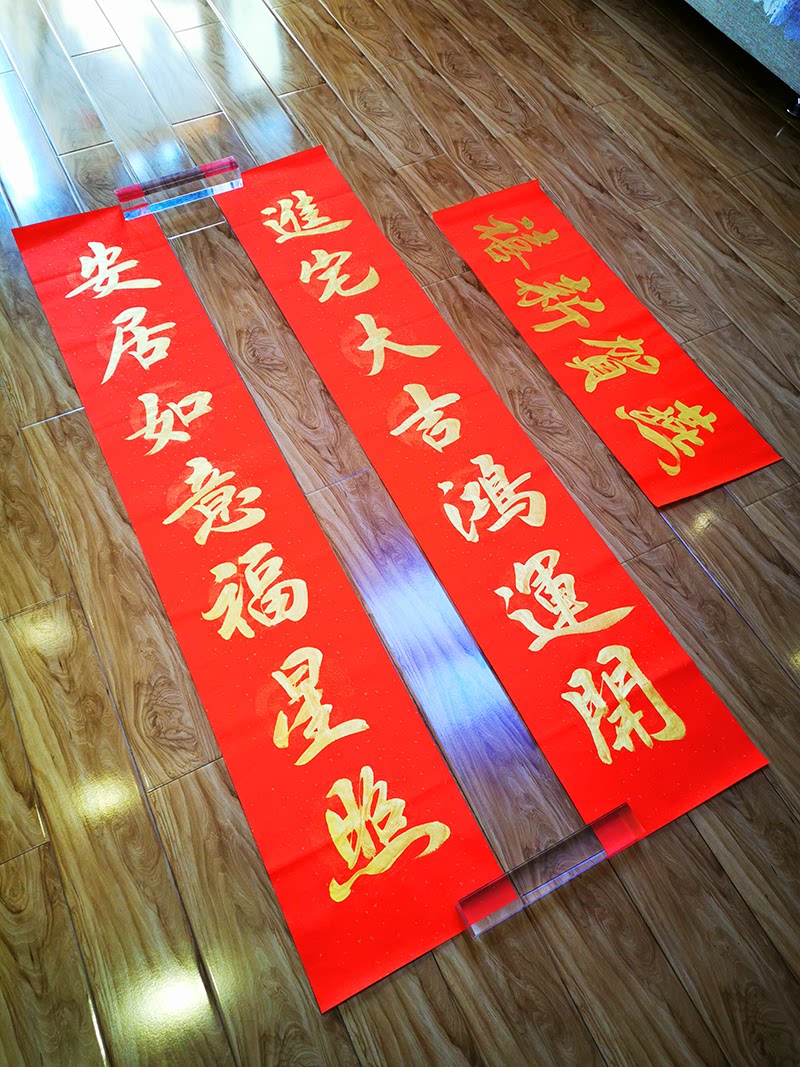 進宅大吉鴻運開
安居如意福星照
恭賀新禧